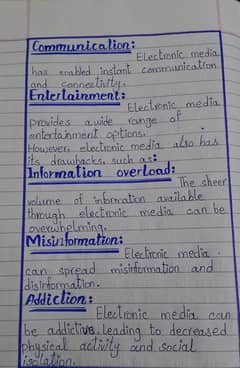 Communication:
Electronic media
has enabled instant communication
and connectivity.
Entertainment:
Electronic media
provides a wide range of
entertainment options.
However, electronic media also has
its drawbacks, such as:
Information overload:
The sheer
volume of information available
through electronic media can be
overwhelming.
Misinformation:
Electronic media
can spread misinformation and
disinformation.
Addiction:
Electronic media can
be addictive, leading to decreased
physical activity and social
isolation.